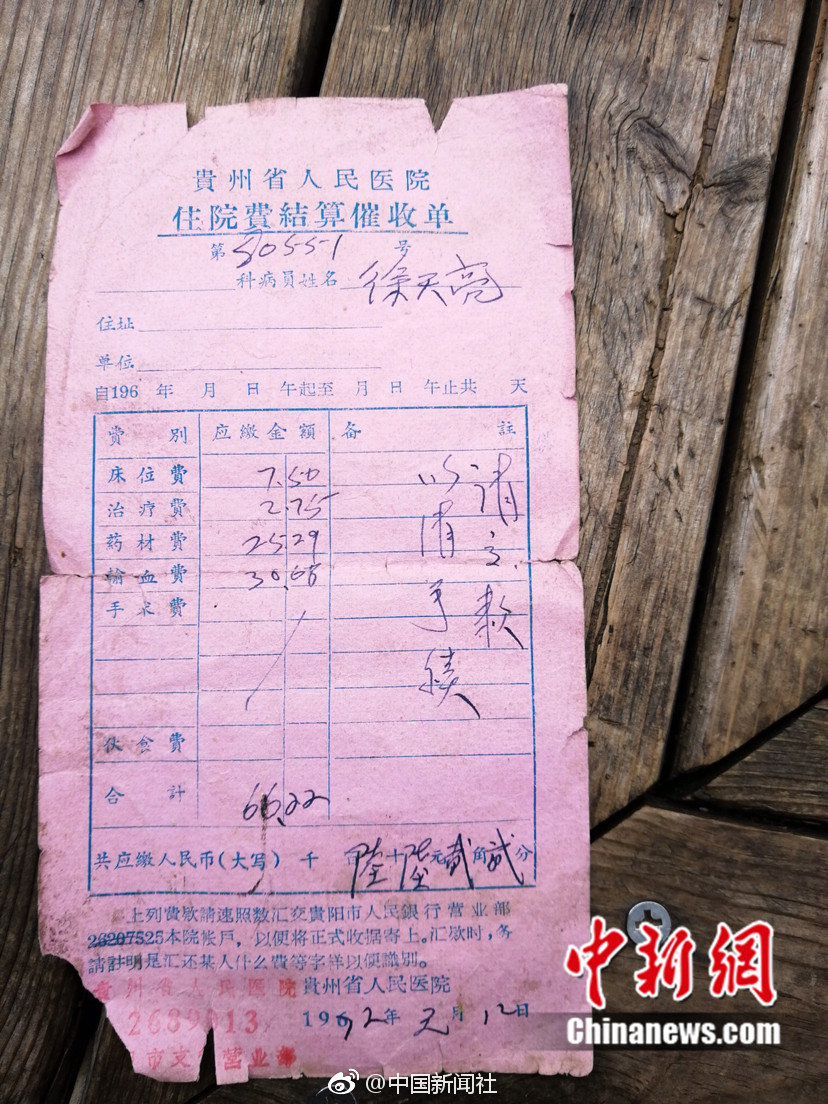 貴州省人民医院
住院費結算催收单
第50551号
科病員姓名 徐天亮
住址
单位
自196 年 月 日 午起至 月 日 午止共 天
費別 应繳金額 备註
床位費 7.50
治疗費 2.75
药材費 25.29
輸血費 30.68
手术費
伙食費
合計 66.22
请交款
以清手续
共应繳人民币(大写) 千 百陸十陸元贰角贰分
上列費欵請速照数汇交貴阳市人民銀行营业部
26207525本院帐戶，以便将正式收据寄上。汇欵时，务
請註明是汇还某人什么費等字样以便識別。
貴州省人民医院
1962年元月12日
州省人民医院
2689013
市支 营业部
中新網
Chinanews.com
@中国新闻社